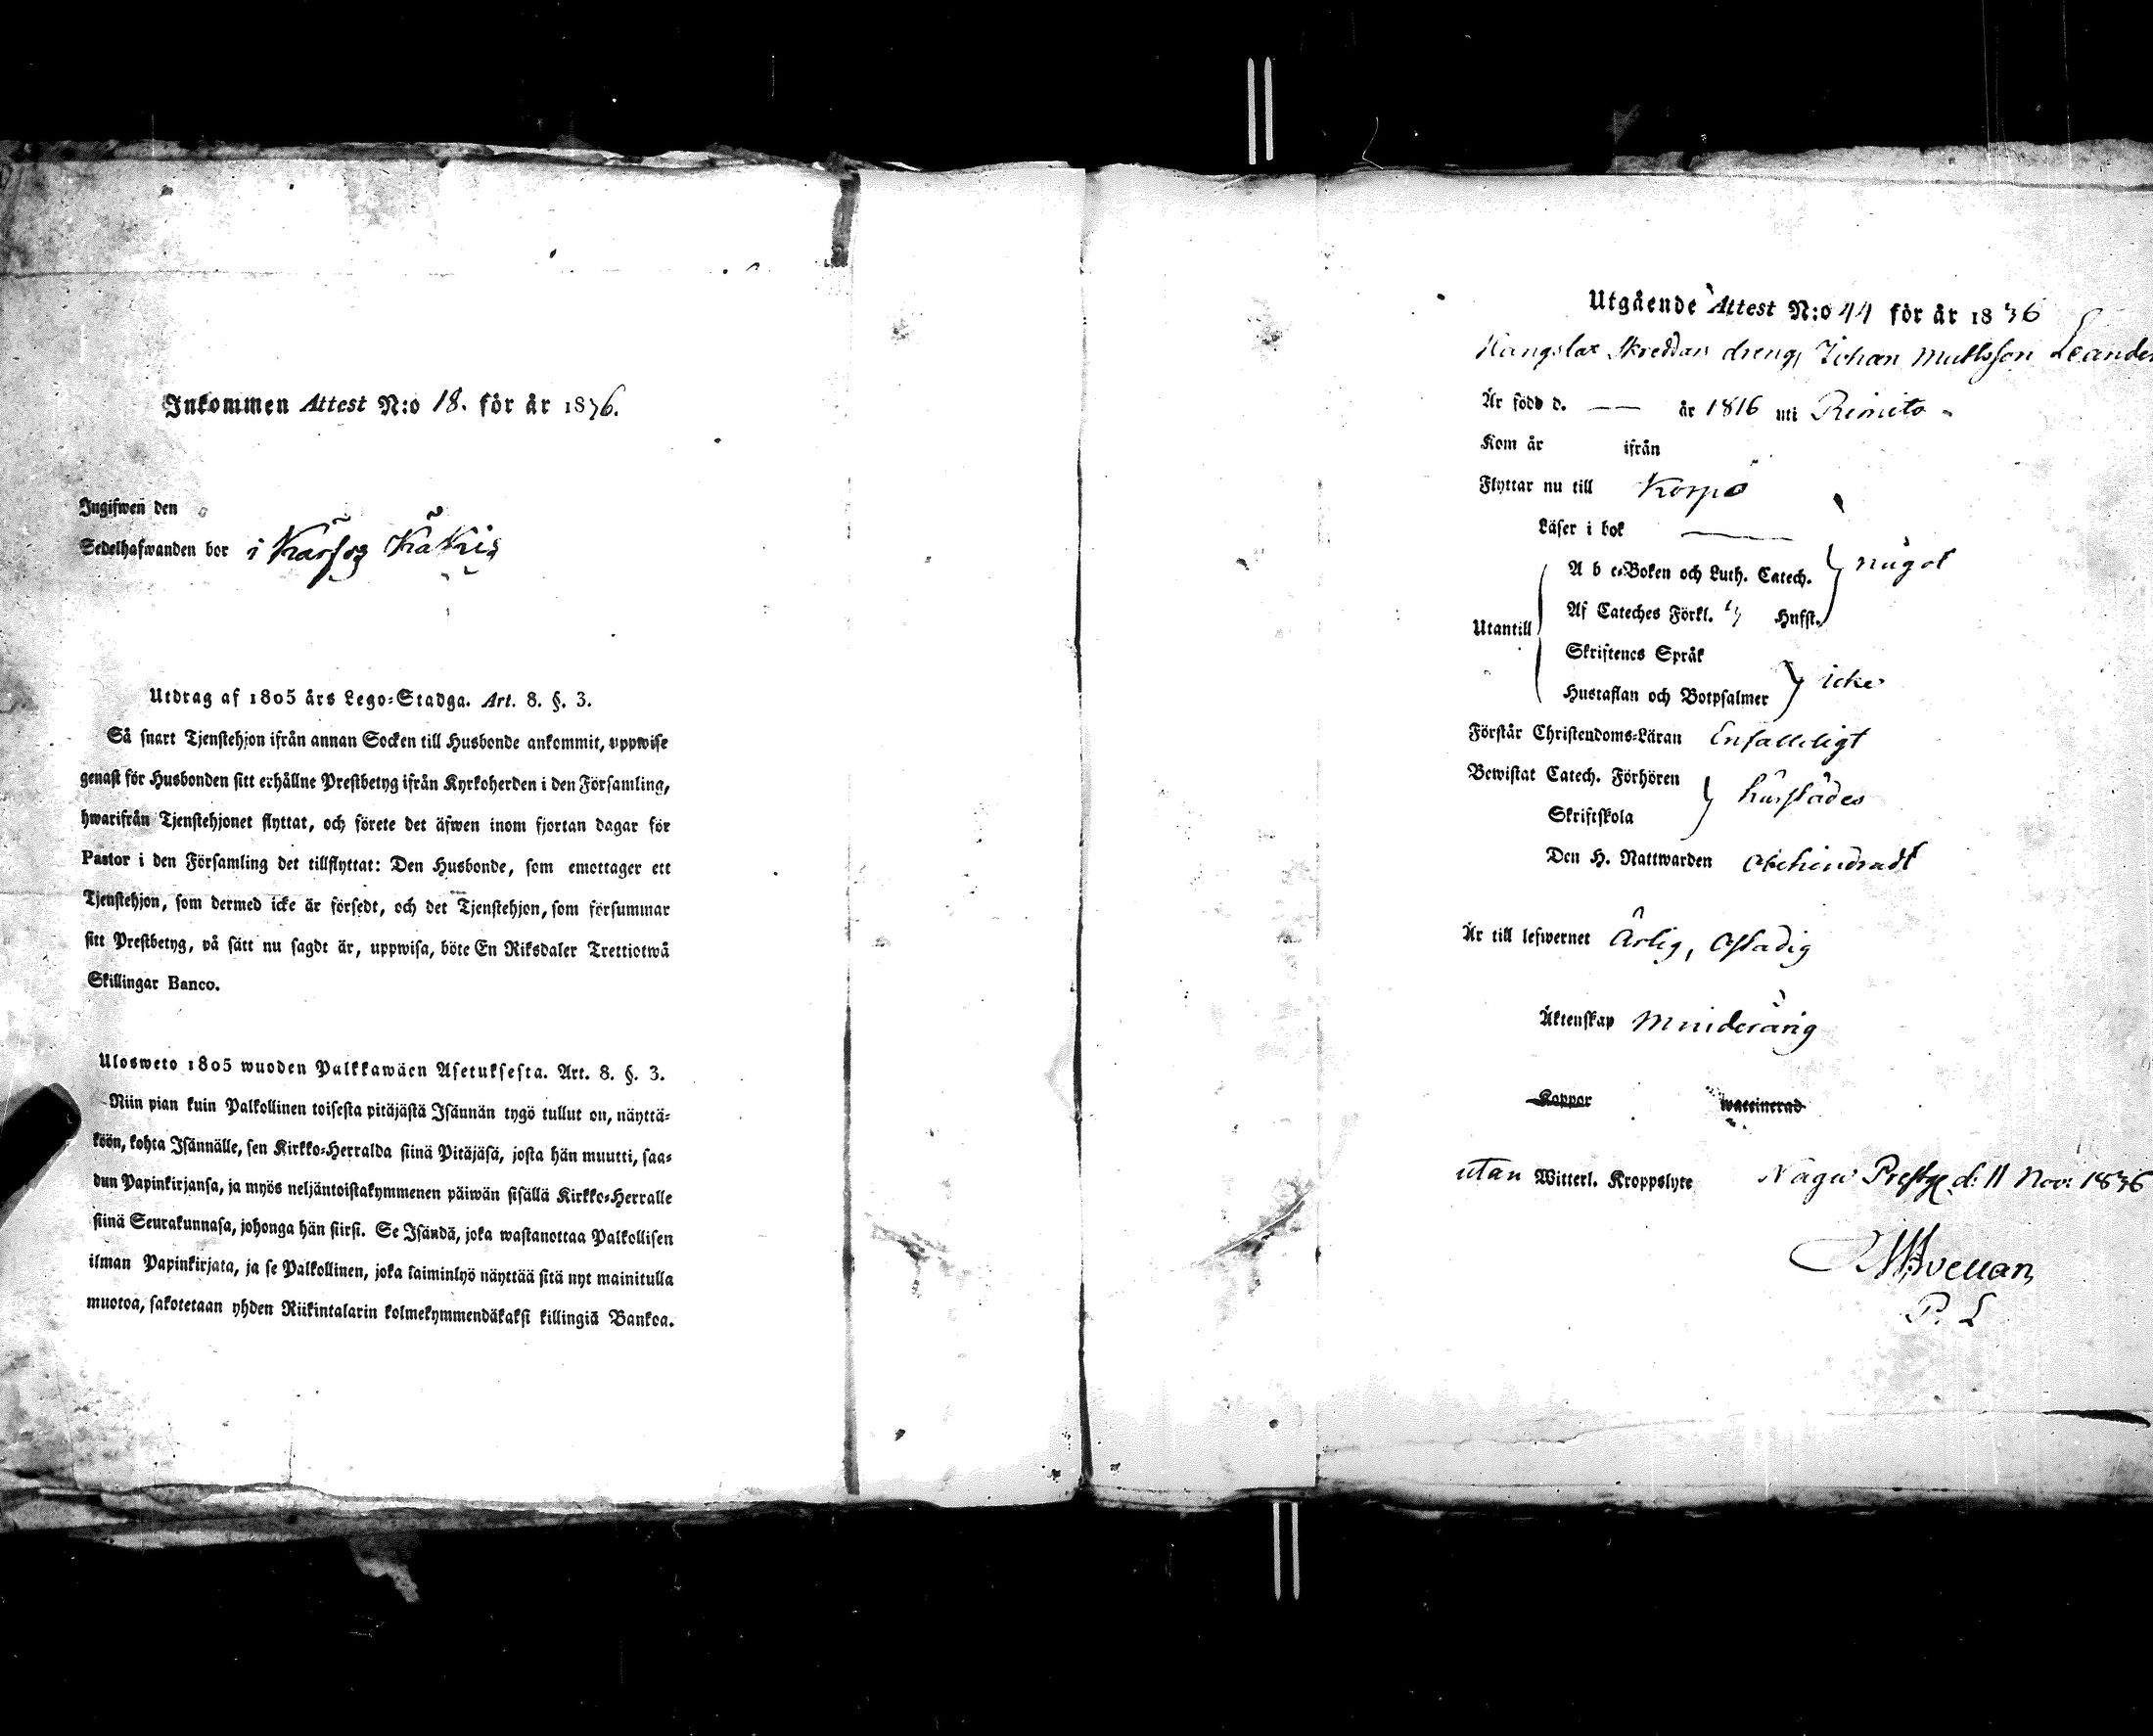 Inkommen Attest N:o 18. för år 1836.
Ingifwen den
Sedelhafwanden bor i
Utdrag af 1805 års Lego-Stadga. Art. 8. §. 3.
Så snart Tjenstehjon ifrån annan Socken till Husbonde ankommit, uppwise
genast för Husbonden sitt erhållne Prestbetyg ifrån Kyrkoherden i den Församling,
hwarifrån Tjenstehjonet flyttat, och förete det äfwen inom fjortan dagar för
Pastor i den Församling det tillflyttat: Den Husbonde, som emottager ett
Tjenstehjon, som dermed icke är försedt, och det Tjenstehjon, som försummar
sitt Prestbetyg, på sätt nu sagdt är, uppwisa, böte En Riksdaler Trettiotwå
Skillingar Banco.
Ulosweto 1805 wuoden Palkkawäen Asetuksesta. Art. 8. §. 3.
Niin pian kuin Palkollinen toisesta pitäjästä Isännän tygö tullut on, näyttä-
köön, kohta Isännälle, sen Kirkko-Herralda siinä Pitäjäsä, josta hän muutti, saa-
dun Papinkirjansa, ja myös neljäntoistakymmenen päiwän sisällä Kirkko-Herralle
siinä Seurakunnasa, johonga hän siirsi. Se Isändä, joka wastanottaa Palkollisen
ilman Papinkirjata, ja se Palkollinen, joka laiminlyö näyttää sitä nyt mainitulla
muotoa, sakotetaan yhden Riikintalarin kolmekymmendäkaksi killingiä Bankoa.
Utgående Attest N:o 44 för år 1836
Skreddar dreng Johan Mattsson Leander
Är född d. — år 1816 uti Rimito
Kom år ifrån
Flyttar nu till Korpo
Läser i bok —
A b c-Boken och Luth. Catech. något
Af Cateches Förkl. Hufst.
Utantill
Skriftenes Språk
Hustaflan och Botpsalmer icke
Förstår Christendoms-Läran Enfalleligt
Bewistat Catech. Förhören härstädes
Skriftskola
Den H. Nattwarden obehindradt
Är till lefwernet Ärlig, Ostadig
Äktenskap Minderårig
Koppor waccinerad
utan Witterl. Kroppslyte Nagu Prestg. d: 11 Nov: 1836
Avellan
P. L